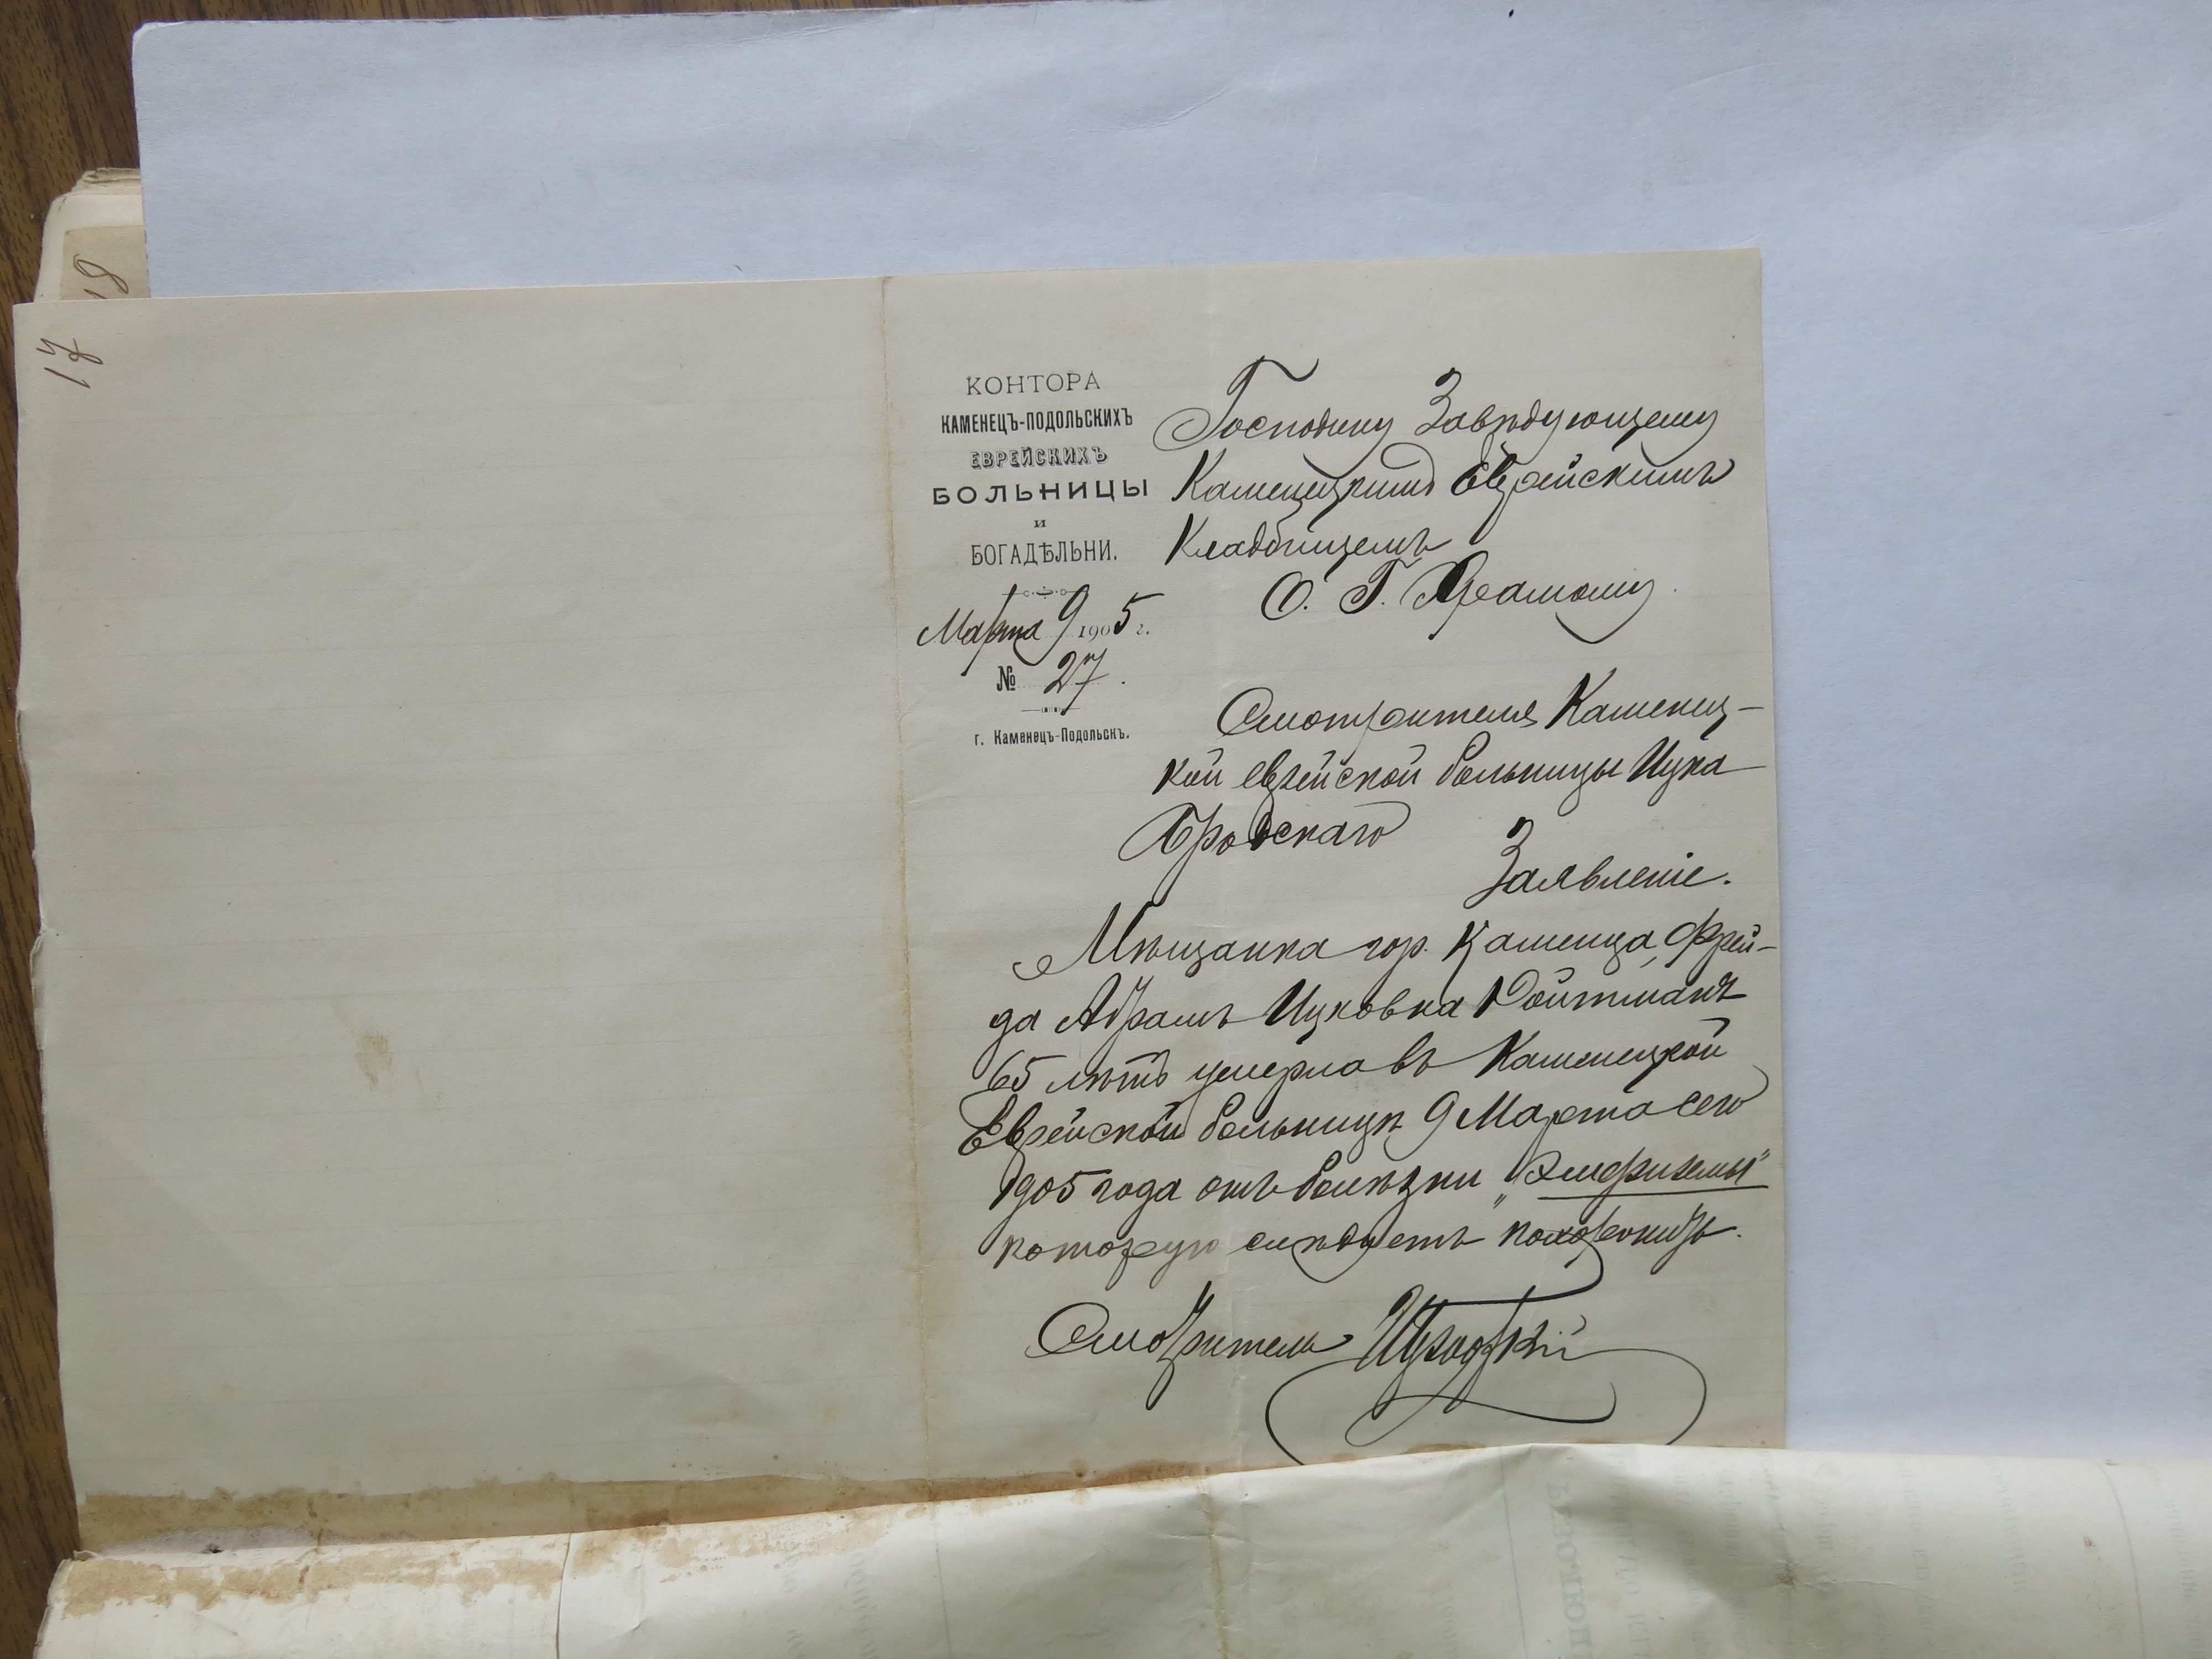 17
КОНТОРА
КАМЕНЕЦЪ-ПОДОЛЬСКИХЪ
ЕВРЕЙСКИХЪ
БОЛЬНИЦЫ
и
БОГАДѢЛЬНИ.
Марта 9 1905 г.
№ 27.
г. Каменецъ-Подольскъ.
Господину Завѣдующему
Каменецкимъ Еврейскимъ
Кладбищемъ
О. Г.
Смотрителя Каменец-
кой еврейской больницы Ицка
Бродскаго
Заявленіе.
Мѣщанка гор. Каменца, Фрей-
да Абрамъ Ицковна Ройтманъ
65 лѣтъ умерла въ Каменецкой
Еврейской больницѣ 9 Марта сего
1905 года отъ болѣзни „Эмфиземы"
которую слѣдуетъ похоронить.
Смотритель